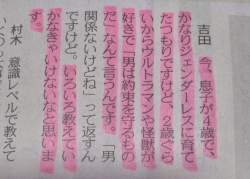 吉田　今、息子が4歳で、
かなりジェンダーレスに育て
たつもりですけど、2歳ぐら
いからウルトラマンや怪獣が
好きで「男は約束を守るもの
だ」なんて言うんです。「男
関係ないけどね」って返すん
ですけど。いろいろ教えてい
かなきゃいけないなと思いま
す。
村木　意識レベルで教えて